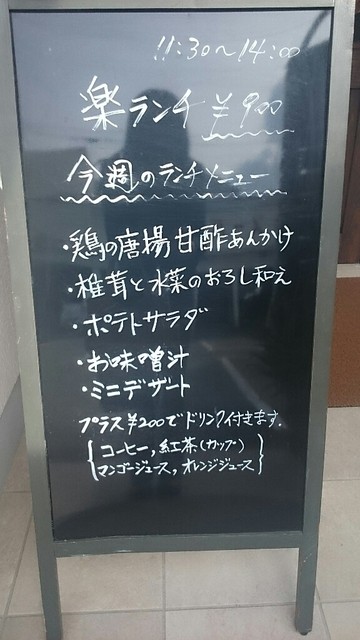 11:30〜14:00
楽ランチ ¥900
今週のランチメニュー
・鶏の唐揚甘酢あんかけ
・椎茸と水菜のおろし和え
・ポテトサラダ
・お味噌汁
・ミニデザート
プラス¥200でドリンク付きます。
コーヒー, 紅茶(カップ)
マンゴージュース, オレンジジュース